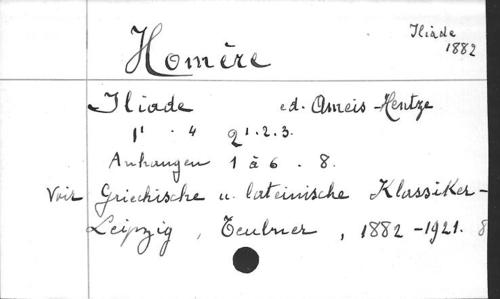 Homère
Iliade
1882
Iliade ed. Ameis-Hentze
1¹ · 4 2¹·2·3·
Anhangen 1 à 6 · 8.
Voir Griechische u. lateinische Klassiker-
Leipzig, Teubner, 1882-1921. 8